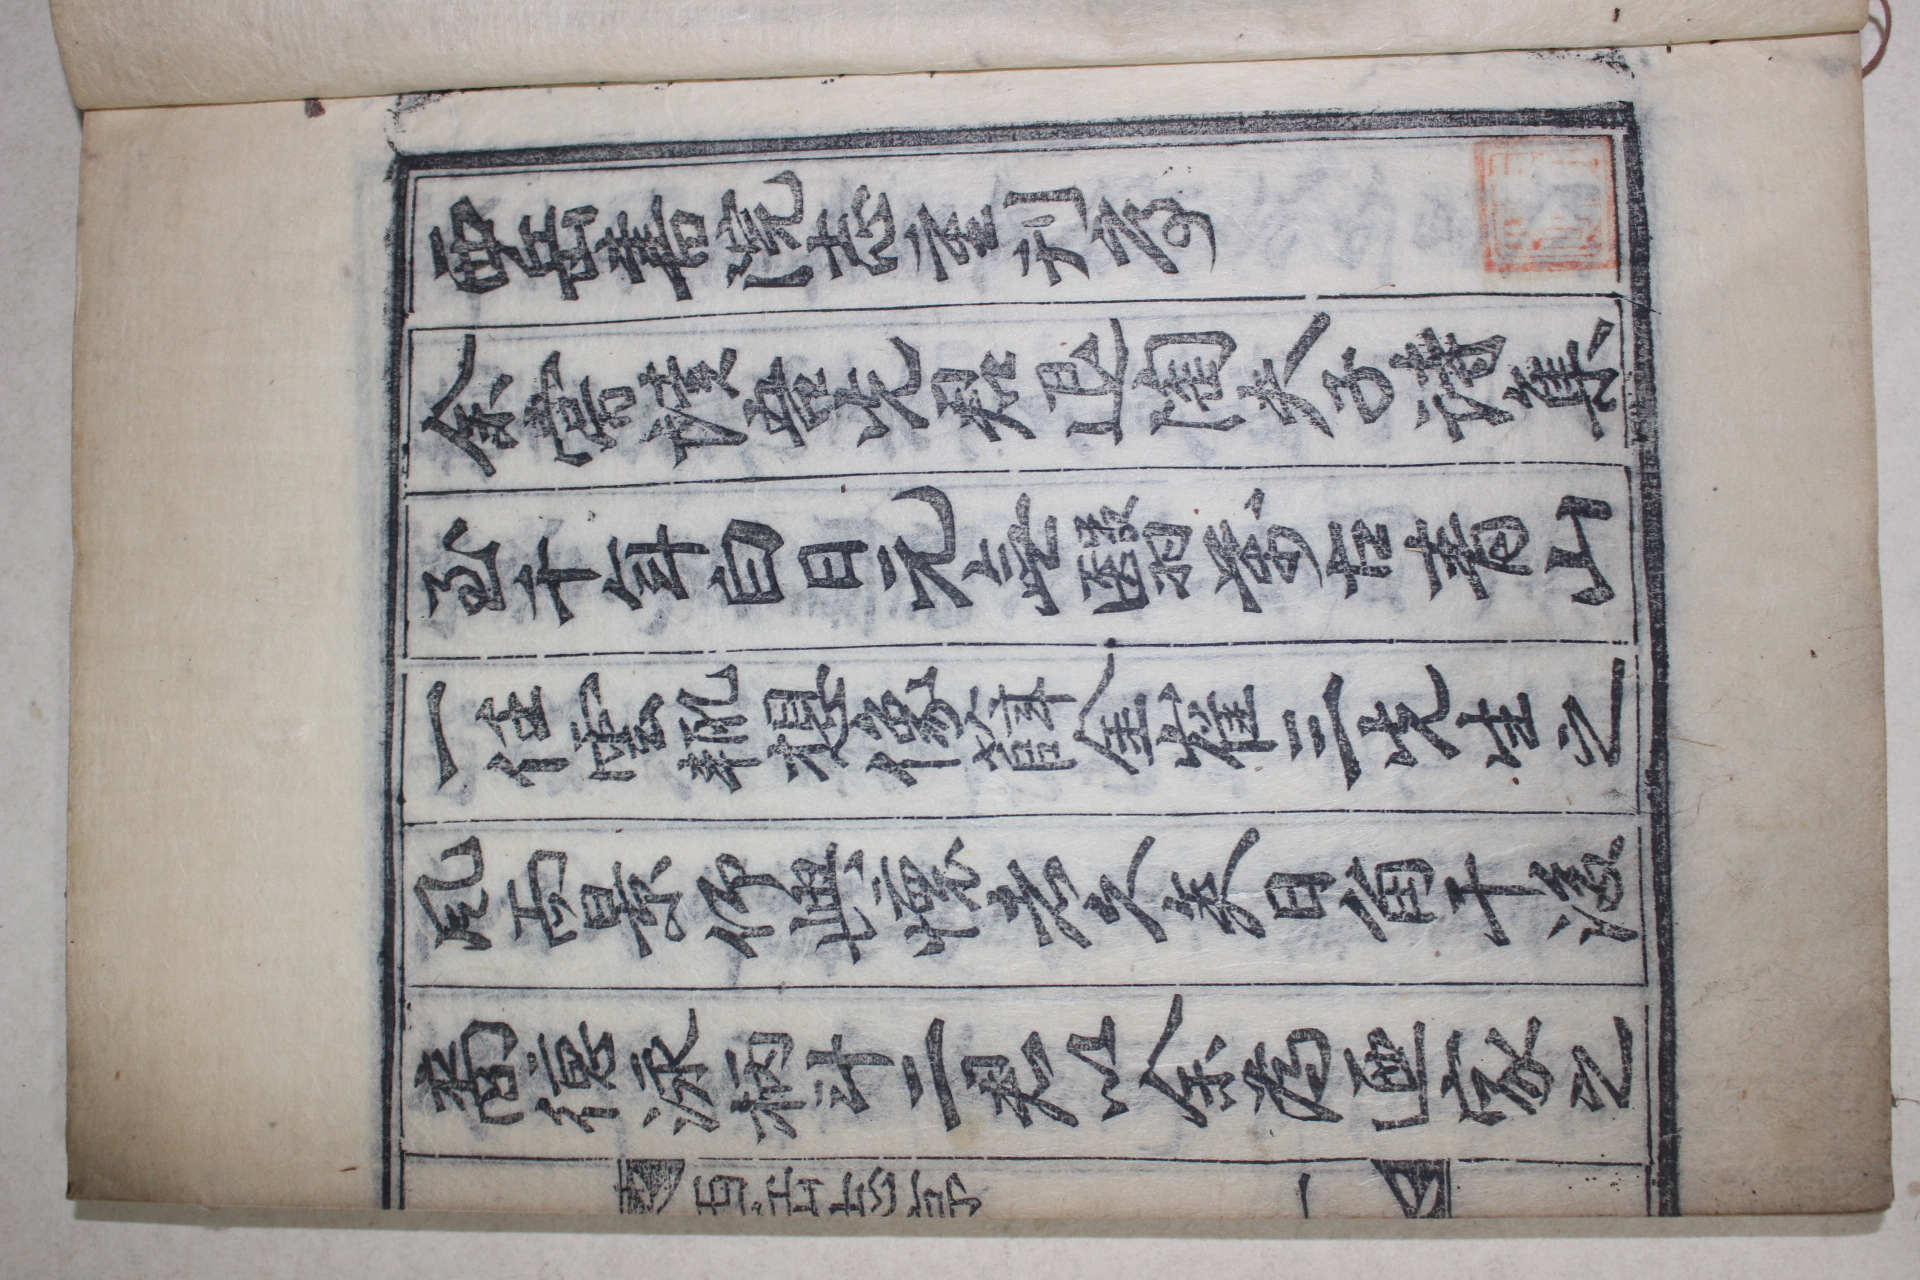 西岳書院志重刊序
余嘗讀吾先君退陶夫子詩集
至千年白日元無翳萬古青山
一任雲輒想像薛金崔三先生之
風而景仰興懷者久矣日角干後
裔德泳柄斗二君以余為通家之